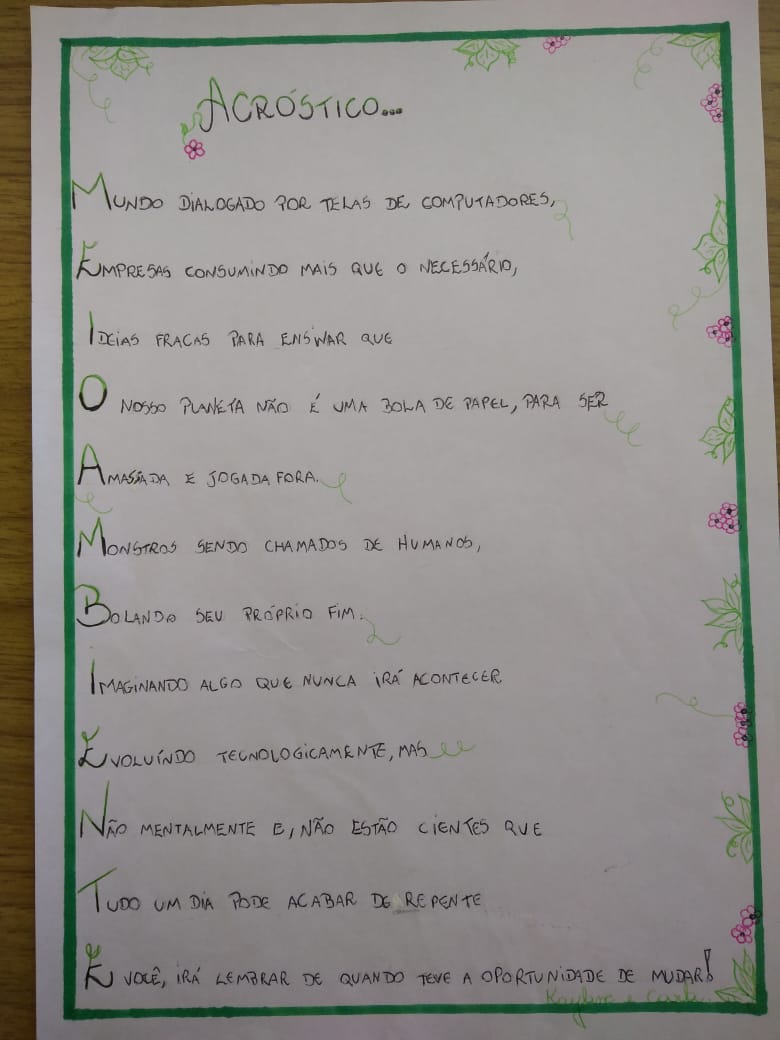 ACRÓSTICO...
MUNDO DIALOGADO POR TELAS DE COMPUTADORES,
EMPRESAS CONSUMINDO MAIS QUE O NECESSÁRIO,
IDEIAS FRACAS PARA ENSINAR QUE
O NOSSO PLANETA NÃO É UMA BOLA DE PAPEL, PARA SER
AMASSADA E JOGADA FORA.
MONSTROS SENDO CHAMADOS DE HUMANOS,
BOLANDO SEU PRÓPRIO FIM.
IMAGINANDO ALGO QUE NUNCA IRÁ ACONTECER
EVOLUÍNDO TECNOLOGICAMENTE, MAS
NÃO MENTALMENTE E, NÃO ESTÃO CIENTES QUE
TUDO UM DIA PODE ACABAR DE REPENTE
E VOCÊ, IRÁ LEMBRAR DE QUANDO TEVE A OPORTUNIDADE DE MUDAR!